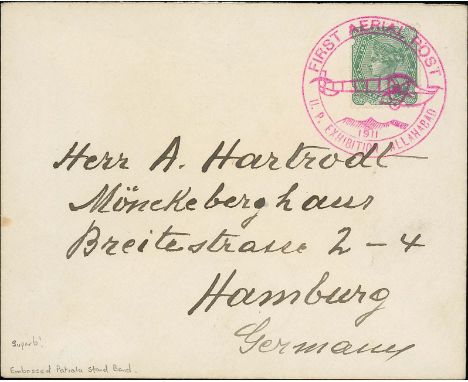 FIRST AERIAL POST
1911
U.P. EXHIBITION ALLAHABAD
Herr A. Hartrodt
Mönckeberghaus
Breitestrasse 2-4
Hamburg
Germany
Superb
Embossed Patiala State Band.